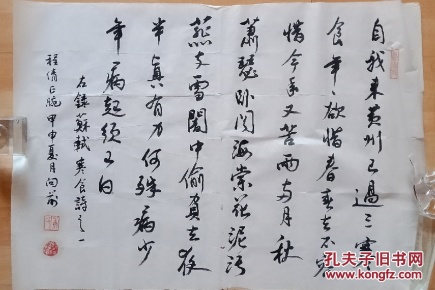 自我来黄州已過三寒
食年々欲惜春春去不容
惜今年又苦雨兩月秋
蕭瑟卧闻海棠花泥污
燕支雪闇中偷負去夜
半真有力何殊病少
年病起须已白
右錄蘇軾寒食詩之一
甲申夏月
孔夫子旧书网
KONGFZ.COM